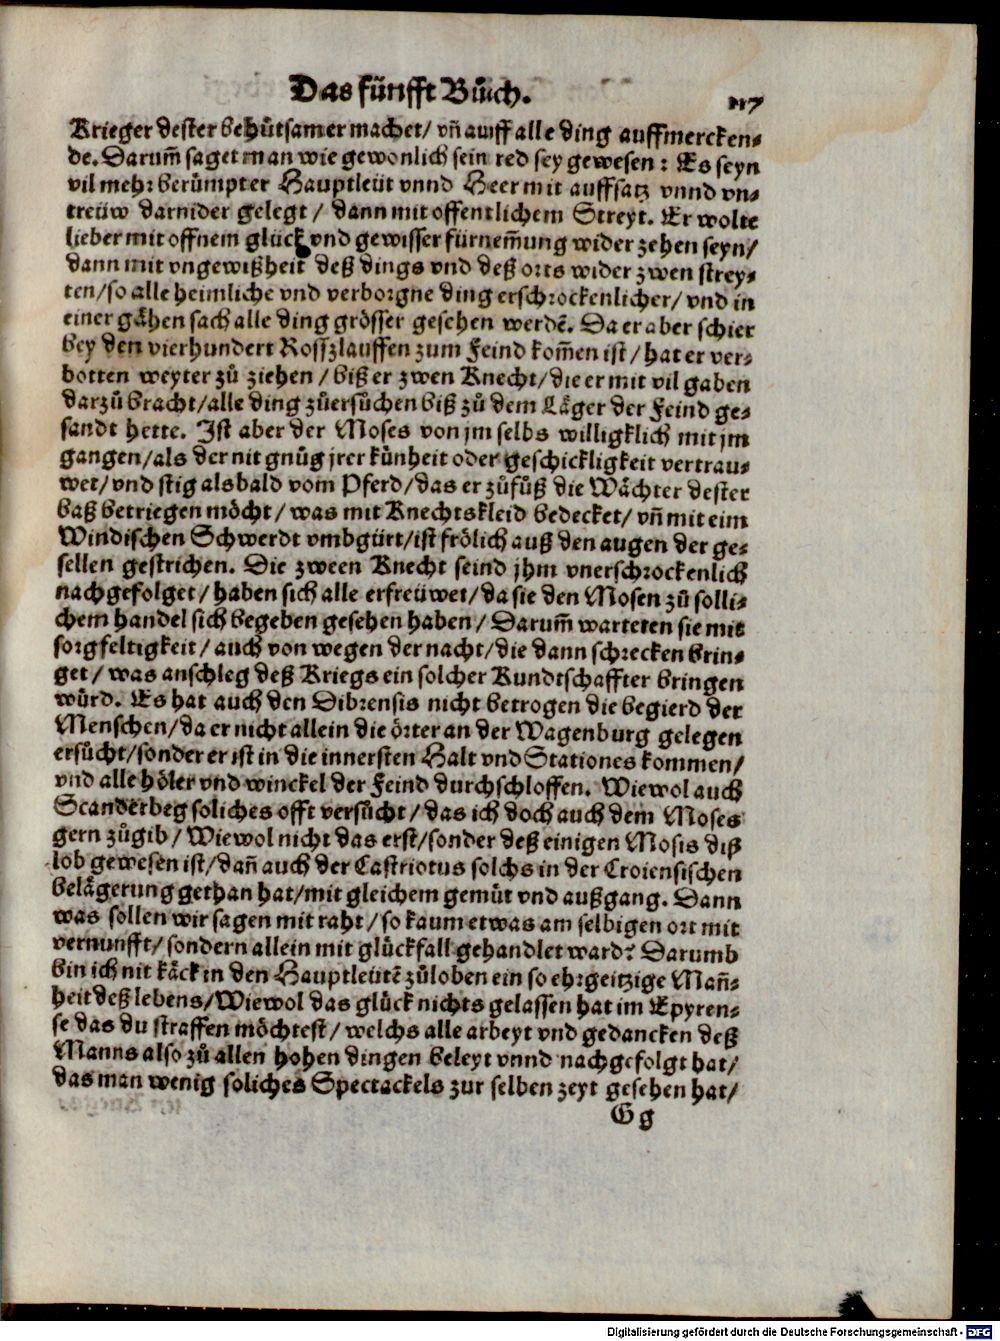 Das fünfft Bůch.
117
Krieger dester behůtsamer machet/ vñ auff alle ding auffmercken⸗
de. Darum̃ saget man wie gewonlich sein red sey gewesen: Es seyn
vil mehr berůmpter Hauptleüt vnnd Heer mit auffsatz vnnd vn⸗
treüw darnider gelegt / dann mit offentlichem Streyt. Er wolte
lieber mit offnem glück vnd gewisser fürnem̃ung wider zehen seyn/
dann mit vngewißheit deß dings vnd deß orts wider zwen strey⸗
ten/so alle heimliche vnd verborgne ding erschrockenlicher/ vnd in
einer gåhen sach alle ding grösser gesehen werdẽ. Da er aber schier
bey den vierhundert Rosszlauffen zum Feind kom̃en ist / hat er ver⸗
botten weyter zů ziehen / biß er zwen Knecht/die er mit vil gaben
darzů bracht/alle ding zůersůchen biß zů dem Låger der Feind ge⸗
sandt hette. Ist aber der Moses von jm selbs willigklich mit jm
gangen/als der nit gnůg jrer künheit oder geschickligkeit vertrau⸗
wet/vnd stig alsbald vom Pferd/das er zůfůß die Wåchter dester
baß betriegen möcht / was mit Knechtskleid bedecket/ vñ mit eim
Windischen Schwerdt vmbgürt/ist frölich auß den augen der ge⸗
sellen gestrichen. Die zween Knecht seind jhm vnerschrockenlich
nachgefolget / haben sich alle erfreüwet/da sie den Mosen zů solli⸗
chem handel sich begeben gesehen haben / Darum̃ warteten sie mit
sorgfeltigkeit / auch von wegen der nacht/die dann schrecken brin⸗
get / was anschleg deß Kriegs ein solcher Kundtschaffter bringen
würd. Es hat auch den Dibrensis nicht betrogen die begierd der
Menschen/da er nicht allein die örter an der Wagenburg gelegen
ersůcht/sonder er ist in die innersten Halt vnd Stationes kommen/
vnd alle höler vnd winckel der Feind durchschloffen. Wiewol auch
Scanderbeg soliches offt versůcht / das ich doch auch dem Moses
gern zůgib / Wiewol nicht das erst/sonder deß einigen Mosis diß
lob gewesen ist/dañ auch der Castriotus solchs in der Croiensischen
belågerung gethan hat/mit gleichem gemüt vnd außgang. Dann
was sollen wir sagen mit raht / so kaum etwas am selbigen ort mit
vernunfft/ sondern allein mit glückfall gehandlet ward? Darumb
bin ich nit kåck in den Hauptleütẽ zůloben ein so ehrgeitzige Mañ⸗
heit deß lebens/Wiewol das glück nichts gelassen hat im Epyren⸗
se das du straffen möchtest / welchs alle arbeyt vnd gedancken deß
Manns also zů allen hohen dingen beleyt vnnd nachgefolgt hat/
das man wenig soliches Spectackels zur selben zeyt gesehen hat/
Gg
Digitalisierung gefördert durch die Deutsche Forschungsgemeinschaft - DFG